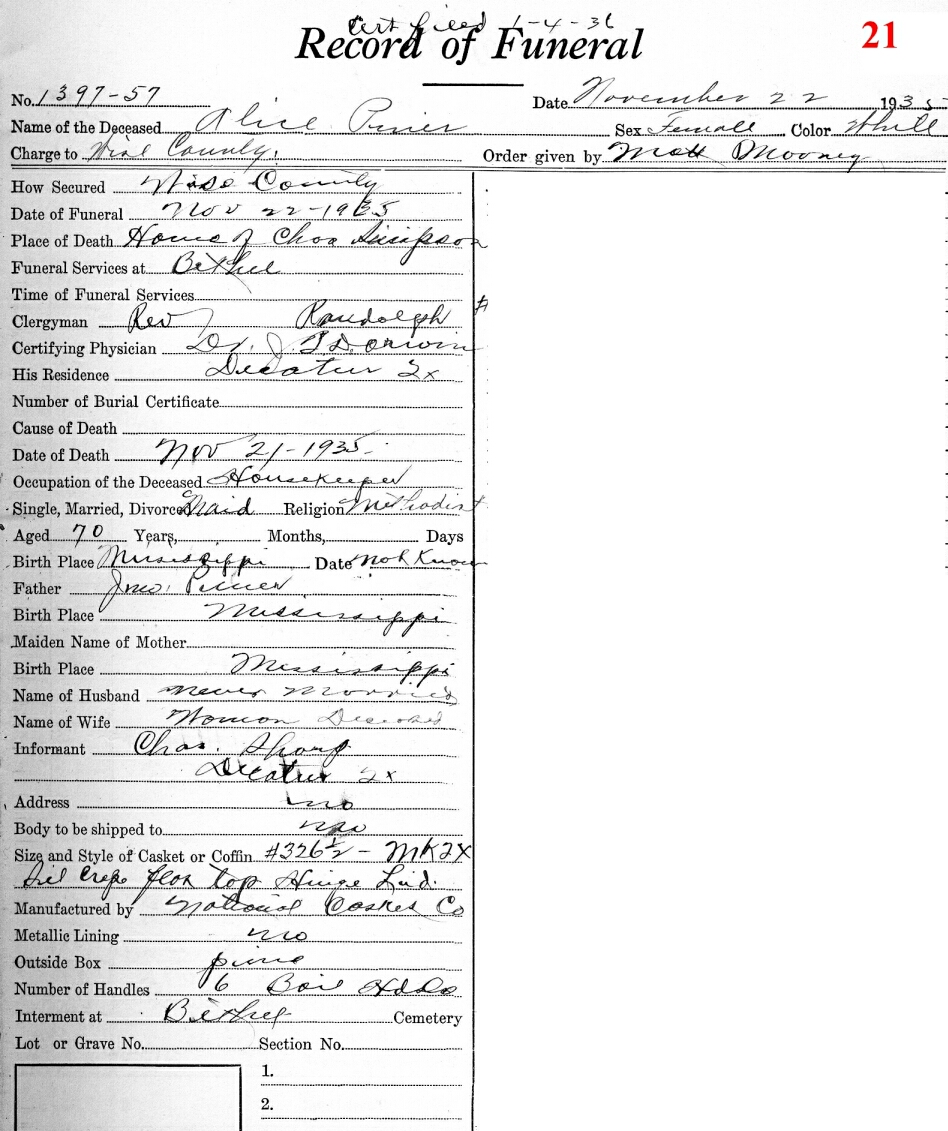 Cert filed 1-4-36
Record of Funeral
21
No. 1397-57 Date November 22 1935
Name of the Deceased Alice Piner Sex Female Color White
Charge to Wise County. Order given by Matt Mooney
How Secured Wise County
Date of Funeral Nov 22-1935
Place of Death Home of Chas Simpson
Funeral Services at Bethel
Time of Funeral Services
Clergyman Rev Randolph
Certifying Physician Dr. J.
His Residence Decatur Tx
Number of Burial Certificate
Cause of Death
Date of Death Nov 21-1935-
Occupation of the Deceased Housekeeper
Single, Married, Divorced Maid Religion Methodist
Aged 70 Years, Months, Days
Birth Place Mississippi Date not Know
Father Jno. Piner
Birth Place Mississippi
Maiden Name of Mother
Birth Place Mississippi
Name of Husband never Married
Name of Wife Woman Deceased
Informant Chas. Sharp
Decatur Tx
Address no
Body to be shipped to no
Size and Style of Casket or Coffin #326½ - MK2X
Crepe flat top Hinge Lid.
Manufactured by National Casket Co
Metallic Lining no
Outside Box pine
Number of Handles 6 Bail Hdls
Interment at Bethel Cemetery
Lot or Grave No. Section No.
1.
2.